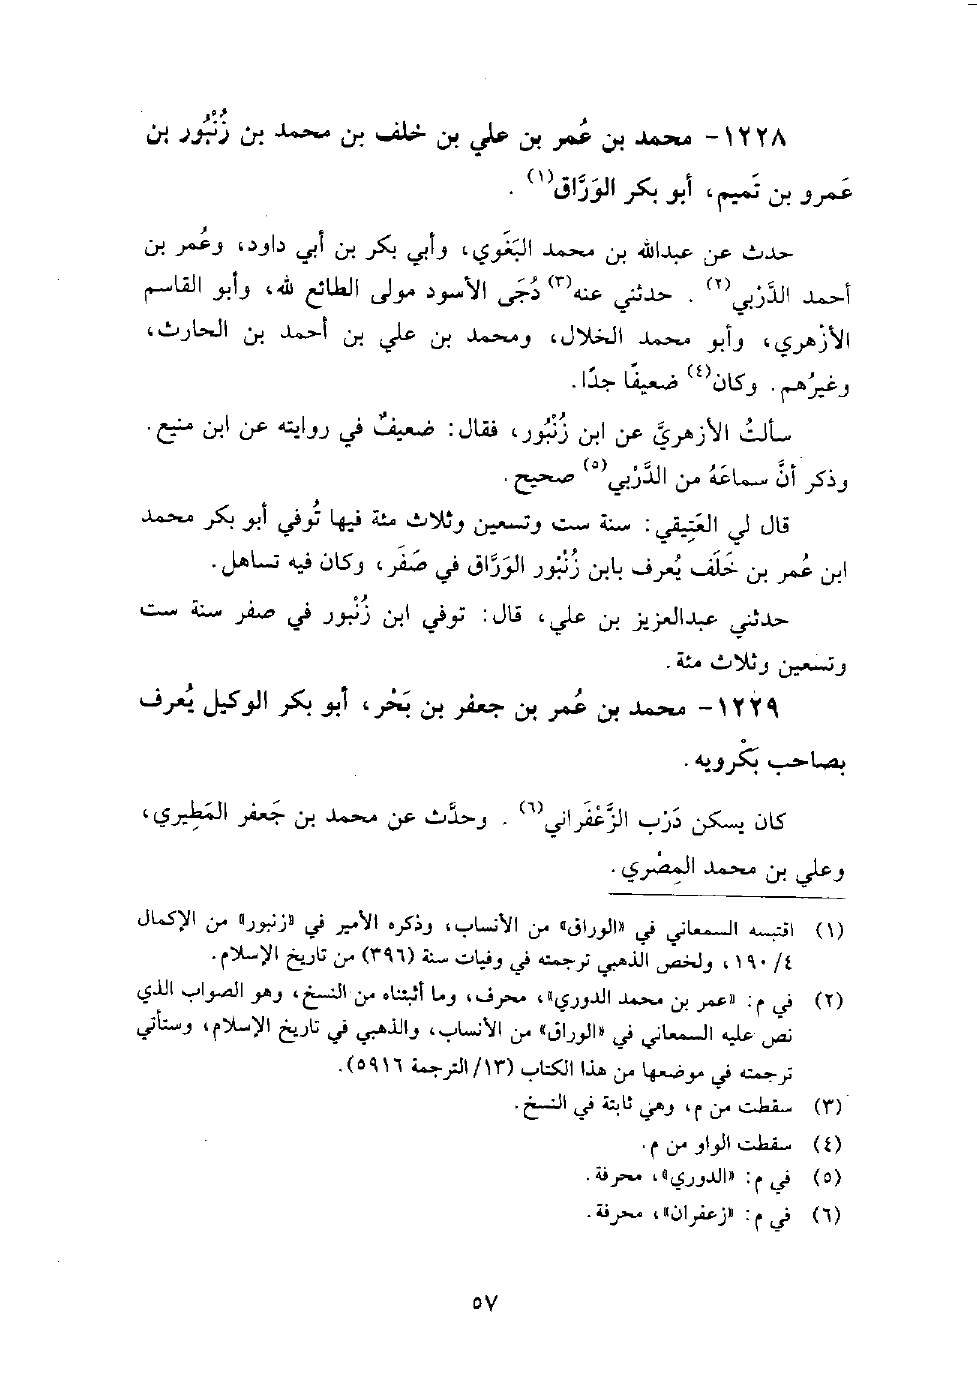 ١٢٢٨- محمد بن عُمر بن علي بن خلف بن محمد بن زُنْبُور بن
عَمرو بن تَميم، أبو بكر الوَرَّاق(١) .
حدث عن عبدالله بن محمد البَغَوي، وأبي بكر بن أبي داود، وعُمر بن
أحمد الدَّرْبي(٢) . حدثني عنه(٣) دُجَى الأسود مولى الطائع لله، وأبو القاسم
الأزْهري، وأبو محمد الخلال، ومحمد بن علي بن أحمد بن الحارث،
وغيرُهم. وكان(٤) ضعيفًا جدًا.
سألتُ الأزهريَّ عن ابن زُنْبُور، فقال: ضعيفٌ في روايته عن ابن منيع.
وذكر أنَّ سماعَهُ من الدَّرْبي(٥) صحيح.
قال لي العَتِيقي: سنة ست وتسعين وثلاث مئة فيها تُوفي أبو بكر محمد
ابن عُمر بن خَلَف يُعرف بابن زُنْبُور الوَرَّاق في صَفَر، وكان فيه تساهل.
حدثني عبدالعزيز بن علي، قال: توفي ابن زُنْبُور في صفر سنة ست
وتسعين وثلاث مئة.
١٢٢٩- محمد بن عُمر بن جعفر بن بَحْر، أبو بكر الوكيل يُعرف
بصاحب بَكْرويه.
كان يسكن دَرْب الزَّعْفَراني(٦) . وحدَّث عن محمد بن جَعفر المَطِيري،
وعلي بن محمد المِصْري.
(١) اقتبسه السمعاني في «الوراق» من الأنساب، وذكره الأمير في «زنبور» من الإكمال
٤/ ١٩٠، ولخص الذهبي ترجمته في وفيات سنة (٣٩٦) من تاريخ الإسلام.
(٢) في م: «عمر بن محمد الدوري»، محرف، وما أثبتناه من النسخ، وهو الصواب الذي
نص عليه السمعاني في «الوراق» من الأنساب، والذهبي في تاريخ الإسلام، وستأتي
ترجمته في موضعها من هذا الكتاب (١٣/ الترجمة ٥٩١٦).
(٣) سقطت من م، وهي ثابتة في النسخ.
(٤) سقطت الواو من م.
(٥) في م: «الدوري»، محرفة.
(٦) في م: «زعفران»، محرفة.
٥٧